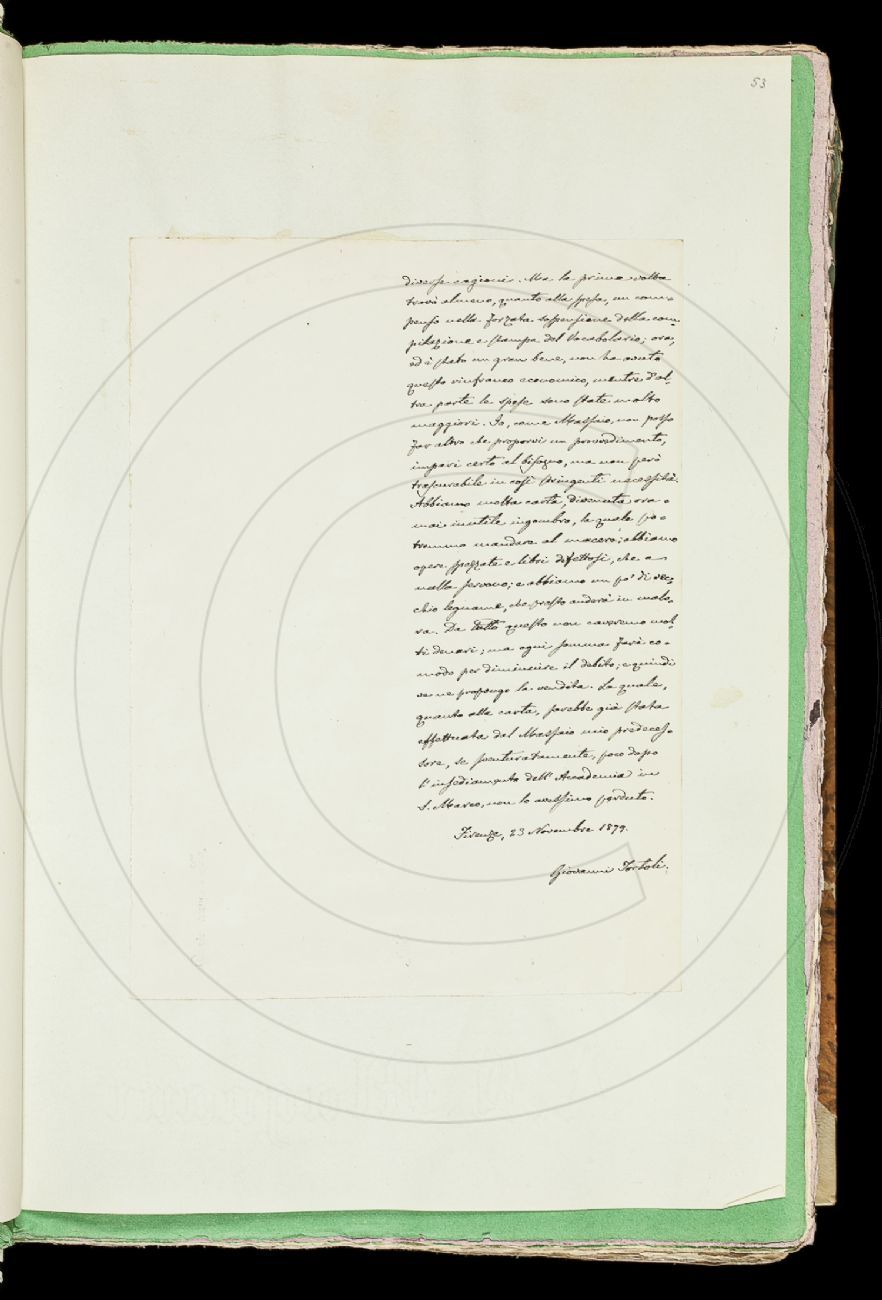 53
diverse cagioni. Ma la prima volta
trovò almeno, quanto alla spesa, un com-
penso nella forzata sospensione della com-
pilazione e stampa del Vocabolario; ora,
ed è stato un gran bene, non ha avuto
questo rinfranco economico, mentre d'al-
tra parte le spese sono state molto
maggiori. Io, come Massaio, non posso
far altro che proporvi un provvedimento,
impari certo al bisogno, ma non però
trascurabile in così stringenti necessità.
Abbiamo molta carta, divenuta ora-
mai inutile ingombro, la quale po-
tremmo mandare al macero; abbiamo
opere spezzate e libri difettosi, che a
nulla servono; e abbiamo un po' di vec-
chio legname, che presto anderà in malo-
ra. Da tutto questo non caveremo mol-
ti denari; ma ogni somma farà co-
modo per diminuire il debito; e quindi
ve ne propongo la vendita. La quale,
quanto alla carta, sarebbe già stata
effettuata dal Massaio mio predeces-
sore, se sventuratamente, poco dopo
l'insediamento dell'Accademia in
S. Marco, non lo avessimo perduto.
Firenze, 23 Novembre 1879.
Giovanni Tortoli.